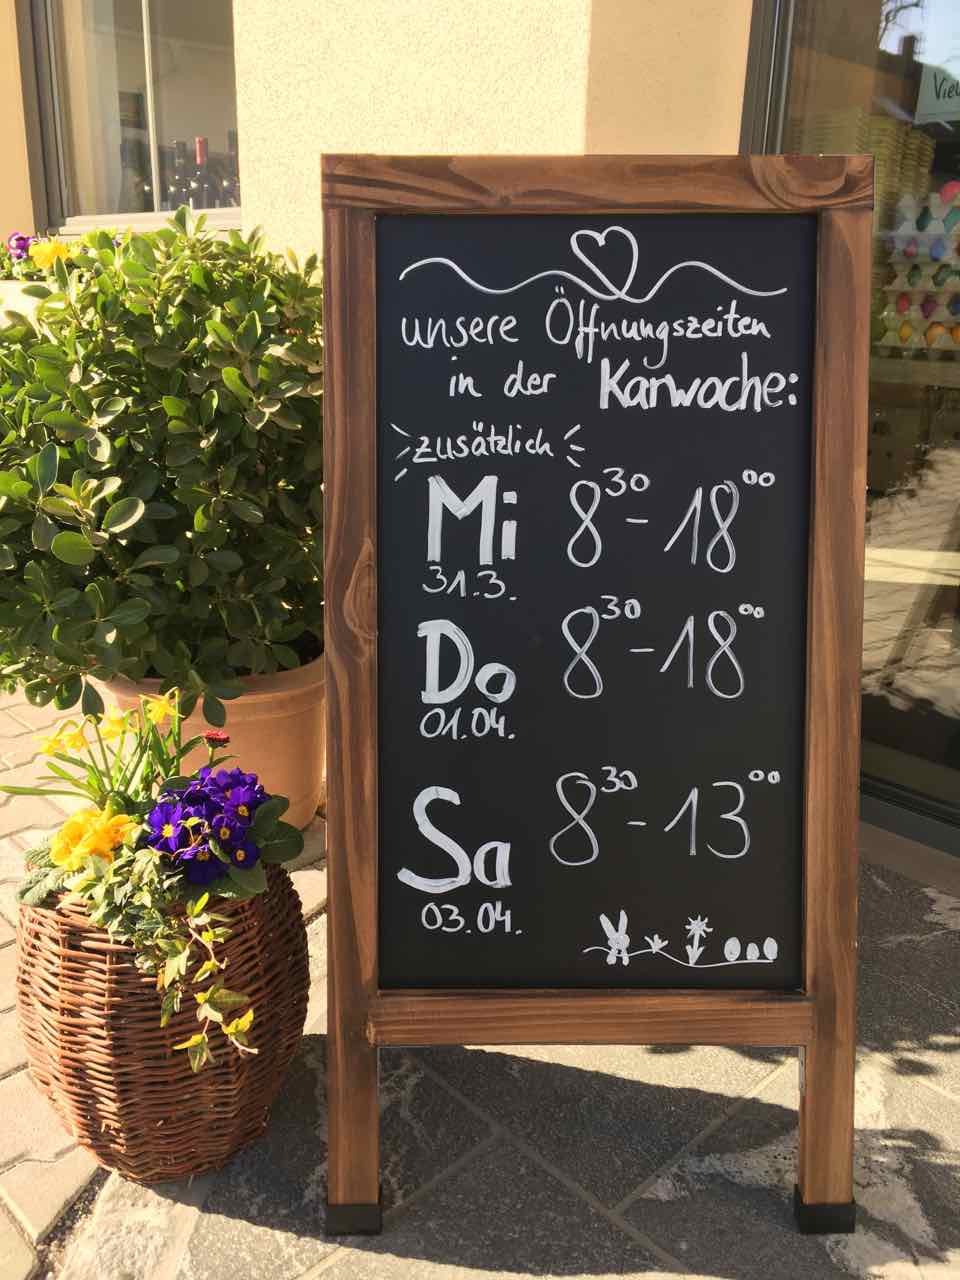 unsere Öffnungszeiten
in der Karwoche:
zusätzlich
Mi 8³⁰ - 18⁰⁰
31.3.
Do 8³⁰ - 18⁰⁰
01.04.
Sa 8³⁰ - 13⁰⁰
03.04.